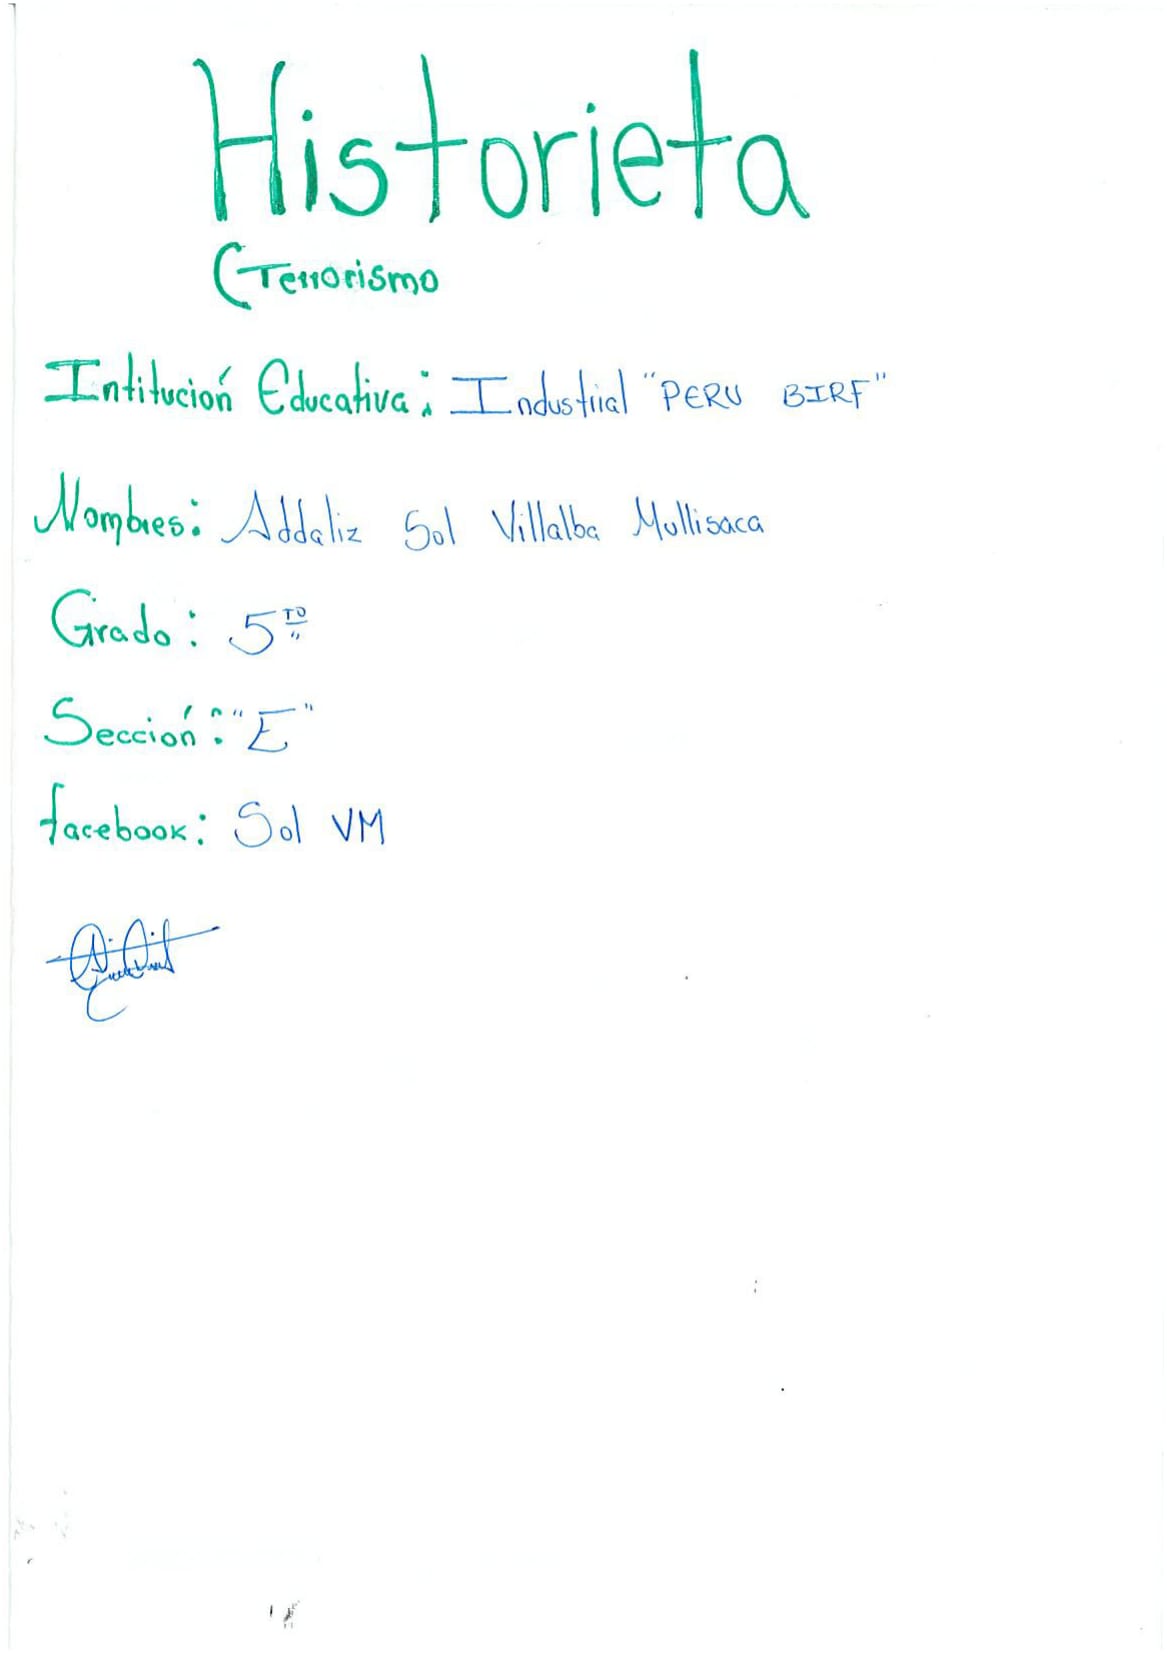 Historieta
(Terrorismo
Intitución Educativa: Industrial "PERU BIRF"
Nombres: Addaliz Sol Villalba Mullisaca
Grado: 5TO
Sección: "E"
facebook: Sol VM